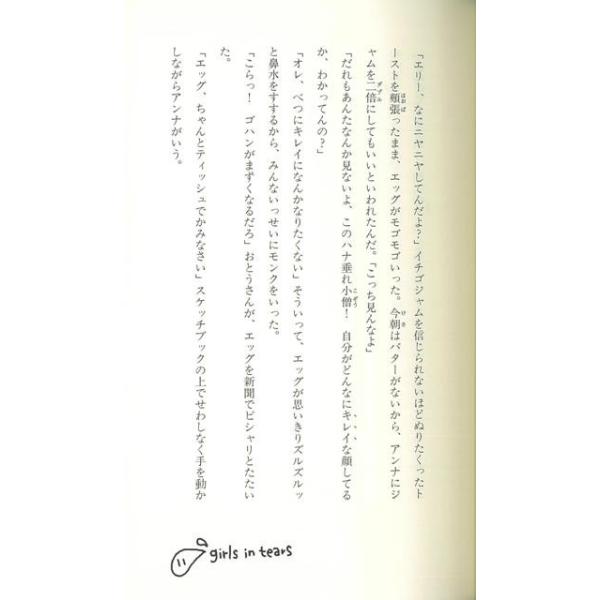 「エリー、なにニヤニヤしてんだよ?」イチゴジャムを信じられないほどぬりたくったト
ーストを頬張ったまま、エッグがモゴモゴいった。今朝はバターがないから、アンナにジ
ャムを二倍にしてもいいといわれたんだ。「こっち見んなよ」
「だれもあんたなんか見ないよ、このハナ垂れ小僧! 自分がどんなにキレイな顔してる
か、わかってんの?」
「オレ、べつにキレイになんかなりたくない」そういって、エッグが思いきりズルズルッ
と鼻水をすするから、みんないっせいにモンクをいった。
「こらっ! ゴハンがまずくなるだろ」おとうさんが、エッグを新聞でピシャリとたたい
た。
「エッグ、ちゃんとティッシュでかみなさい」スケッチブックの上でせわしなく手を動か
しながらアンナがいう。
girls in tears